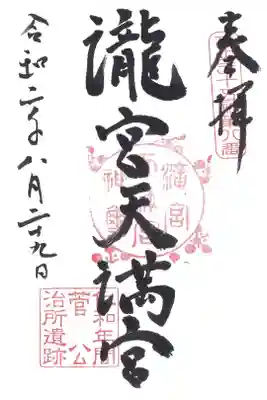 奉拝
瀧宮天満宮
令和二年八月二十九日
仁和年間
菅公
治所遺跡